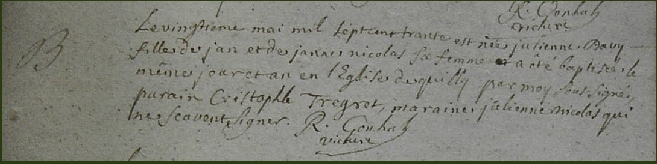 R. Gouhah
victiere
B
Le vingtieme mai mil sept cent trante est née julienne Davy
fille de jan et de janne nicolas sa femme et a eté baptisée le
même jour et an en l'Eglise de quilly par moy sous signé,
parain Cristophle Tregret, maraine julienne nicolas qui
ne scavent signer. R. Gouhah
victiere